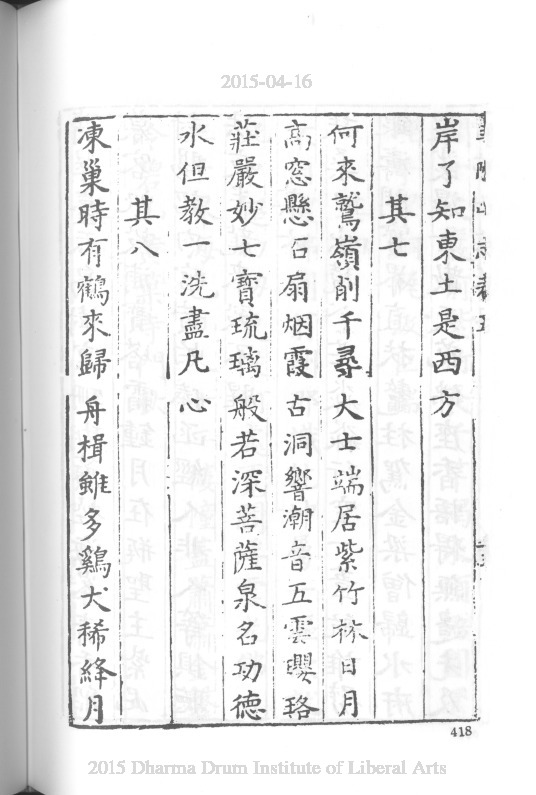 2015-04-16
岸了知東土是西方
其七
何來鷲嶺削千尋大士端居紫竹林日月
高窓懸石扇烟霞古洞響潮音五雲瓔珞
莊嚴妙七寶琉璃般若深菩薩泉名功德
水但教一洗盡凡心
其八
凍巢時有鶴來歸舟楫雖多鷄犬稀絳月
418
2015 Dharma Drum Institute of Liberal Arts